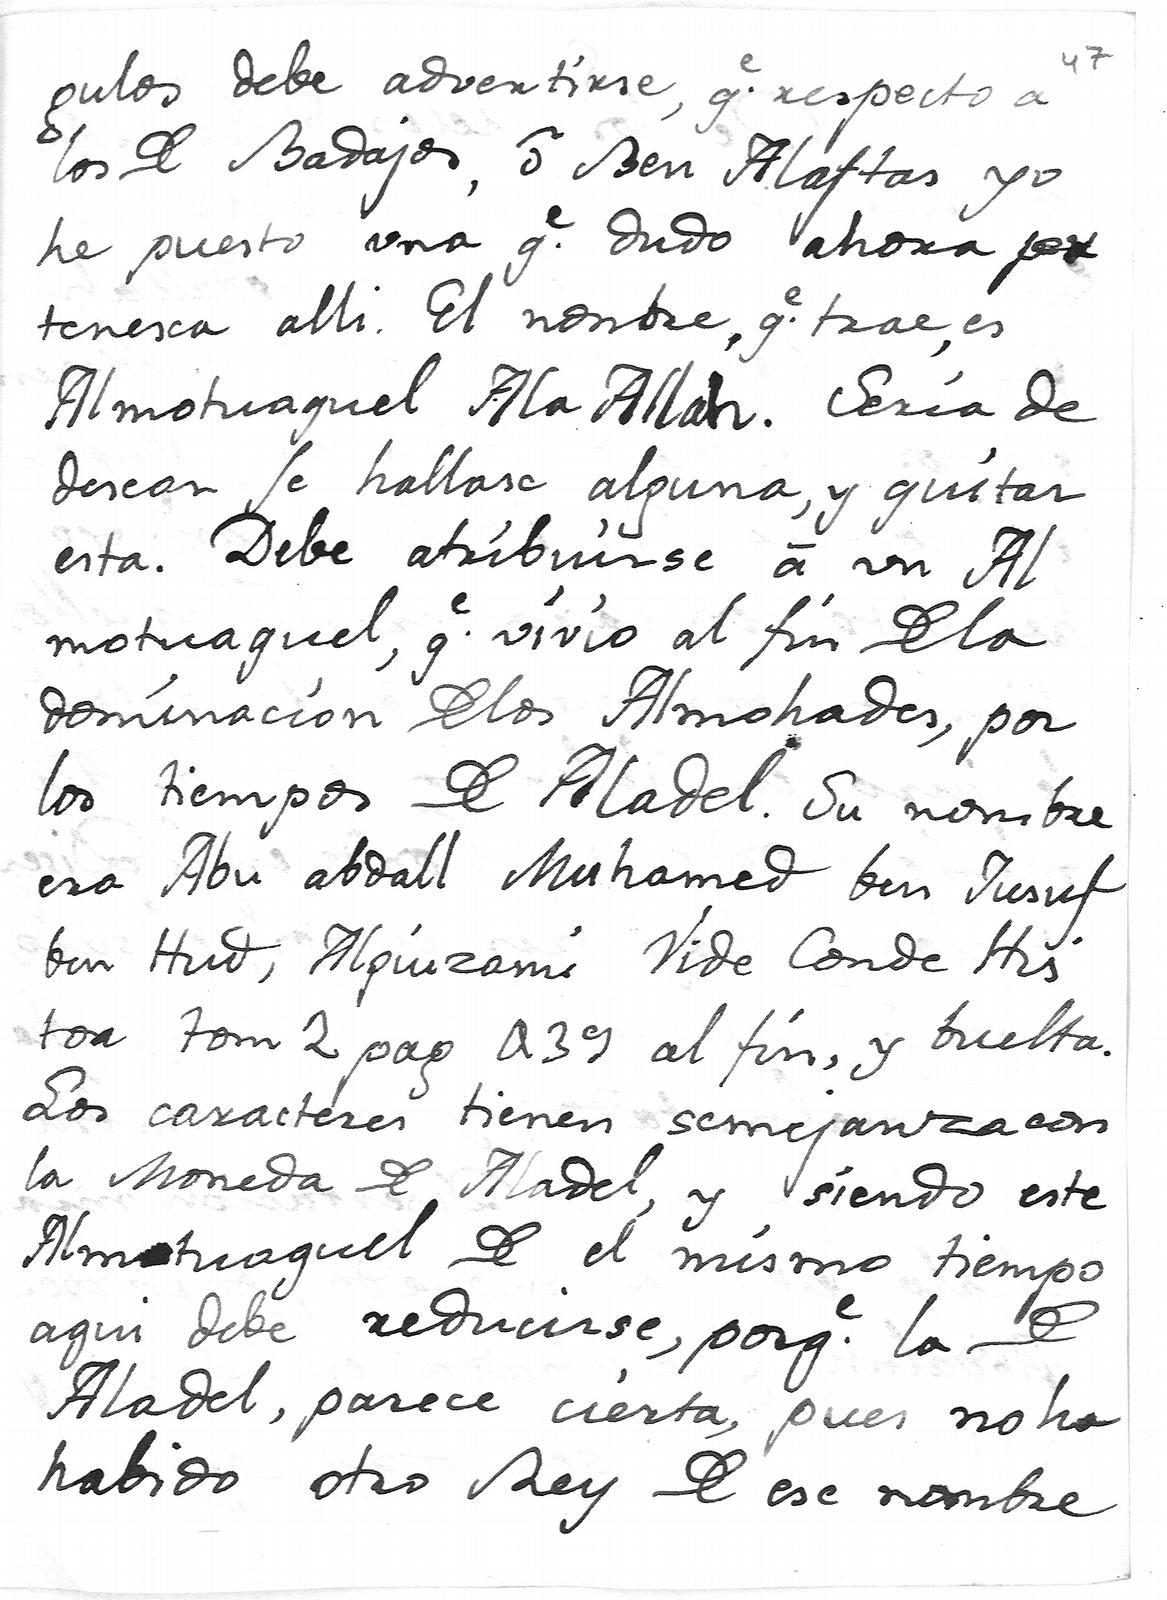 47
gulos debe advertirse, q.e respecto a
los De Badajos, ō Ben Alaftas yo
he puesto vna q.e dudo ahora per
tenesca alli. El nombre, q.e trae, es
Almotuaquel Ala Allah. Sería de
desear se hallase alguna, y quitar
esta. Debe atribuirse ā vn Al
motuaquel, q.e vivio al fin Dela
dominacion Delos Almohades, por
los tiempos De Aladel. Su nombre
era Abu abdall Muhamed ben Jusuf
ben Hud, Algiuzami Vide Conde His
toa tom 2 pag 439 al fin, y buelta.
Los caracteres tienen semejanza con
la Moneda De Aladel, y siendo este
Almotuaquel De el mismo tiempo
aqui debe reducirse, porq.e la De
Aladel, parece cierta, pues no ha
habido otro Rey De ese nombre